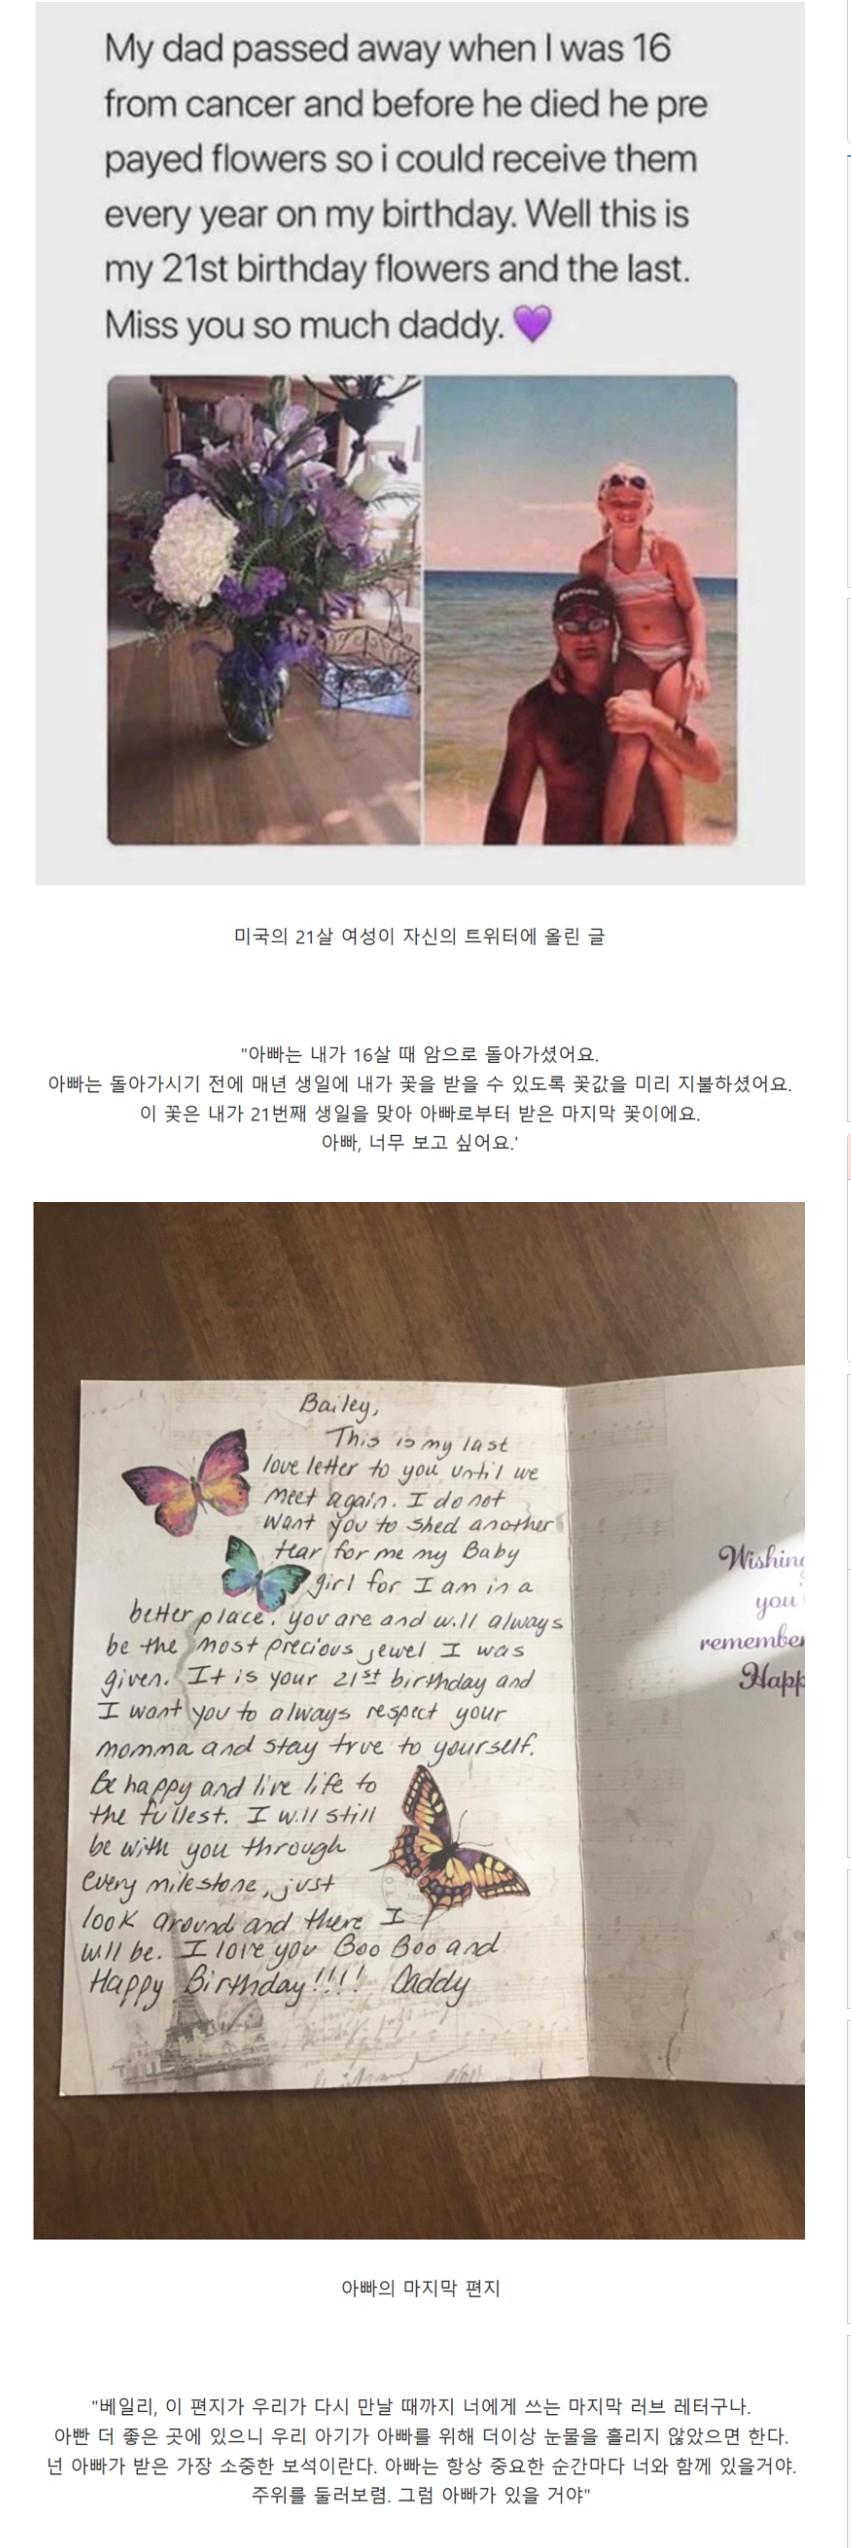 My dad passed away when I was 16
from cancer and before he died he pre
payed flowers so i could receive them
every year on my birthday. Well this is
my 21st birthday flowers and the last.
Miss you so much daddy. 💜
미국의 21살 여성이 자신의 트위터에 올린 글
"아빠는 내가 16살 때 암으로 돌아가셨어요.
아빠는 돌아가시기 전에 매년 생일에 내가 꽃을 받을 수 있도록 꽃값을 미리 지불하셨어요.
이 꽃은 내가 21번째 생일을 맞아 아빠로부터 받은 마지막 꽃이에요.
아빠, 너무 보고 싶어요.'
Bailey,
This is my last
love letter to you until we
meet again. I do not
want you to shed another
tear for me my Baby
girl for I am in a
better place. you are and will always
be the most precious jewel I was
given. It is your 21st birthday and
I want you to always respect your
momma and stay true to yourself.
Be happy and live life to
the fullest. I will still
be with you through
every milestone, just
look around and there I
will be. I love you Boo Boo and
Happy Birthday!!!! Daddy
Wishing
you'
remember
Happ
아빠의 마지막 편지
"베일리, 이 편지가 우리가 다시 만날 때까지 너에게 쓰는 마지막 러브 레터구나.
아빤 더 좋은 곳에 있으니 우리 아기가 아빠를 위해 더이상 눈물을 흘리지 않았으면 한다.
넌 아빠가 받은 가장 소중한 보석이란다. 아빠는 항상 중요한 순간마다 너와 함께 있을거야.
주위를 둘러보렴. 그럼 아빠가 있을 거야"